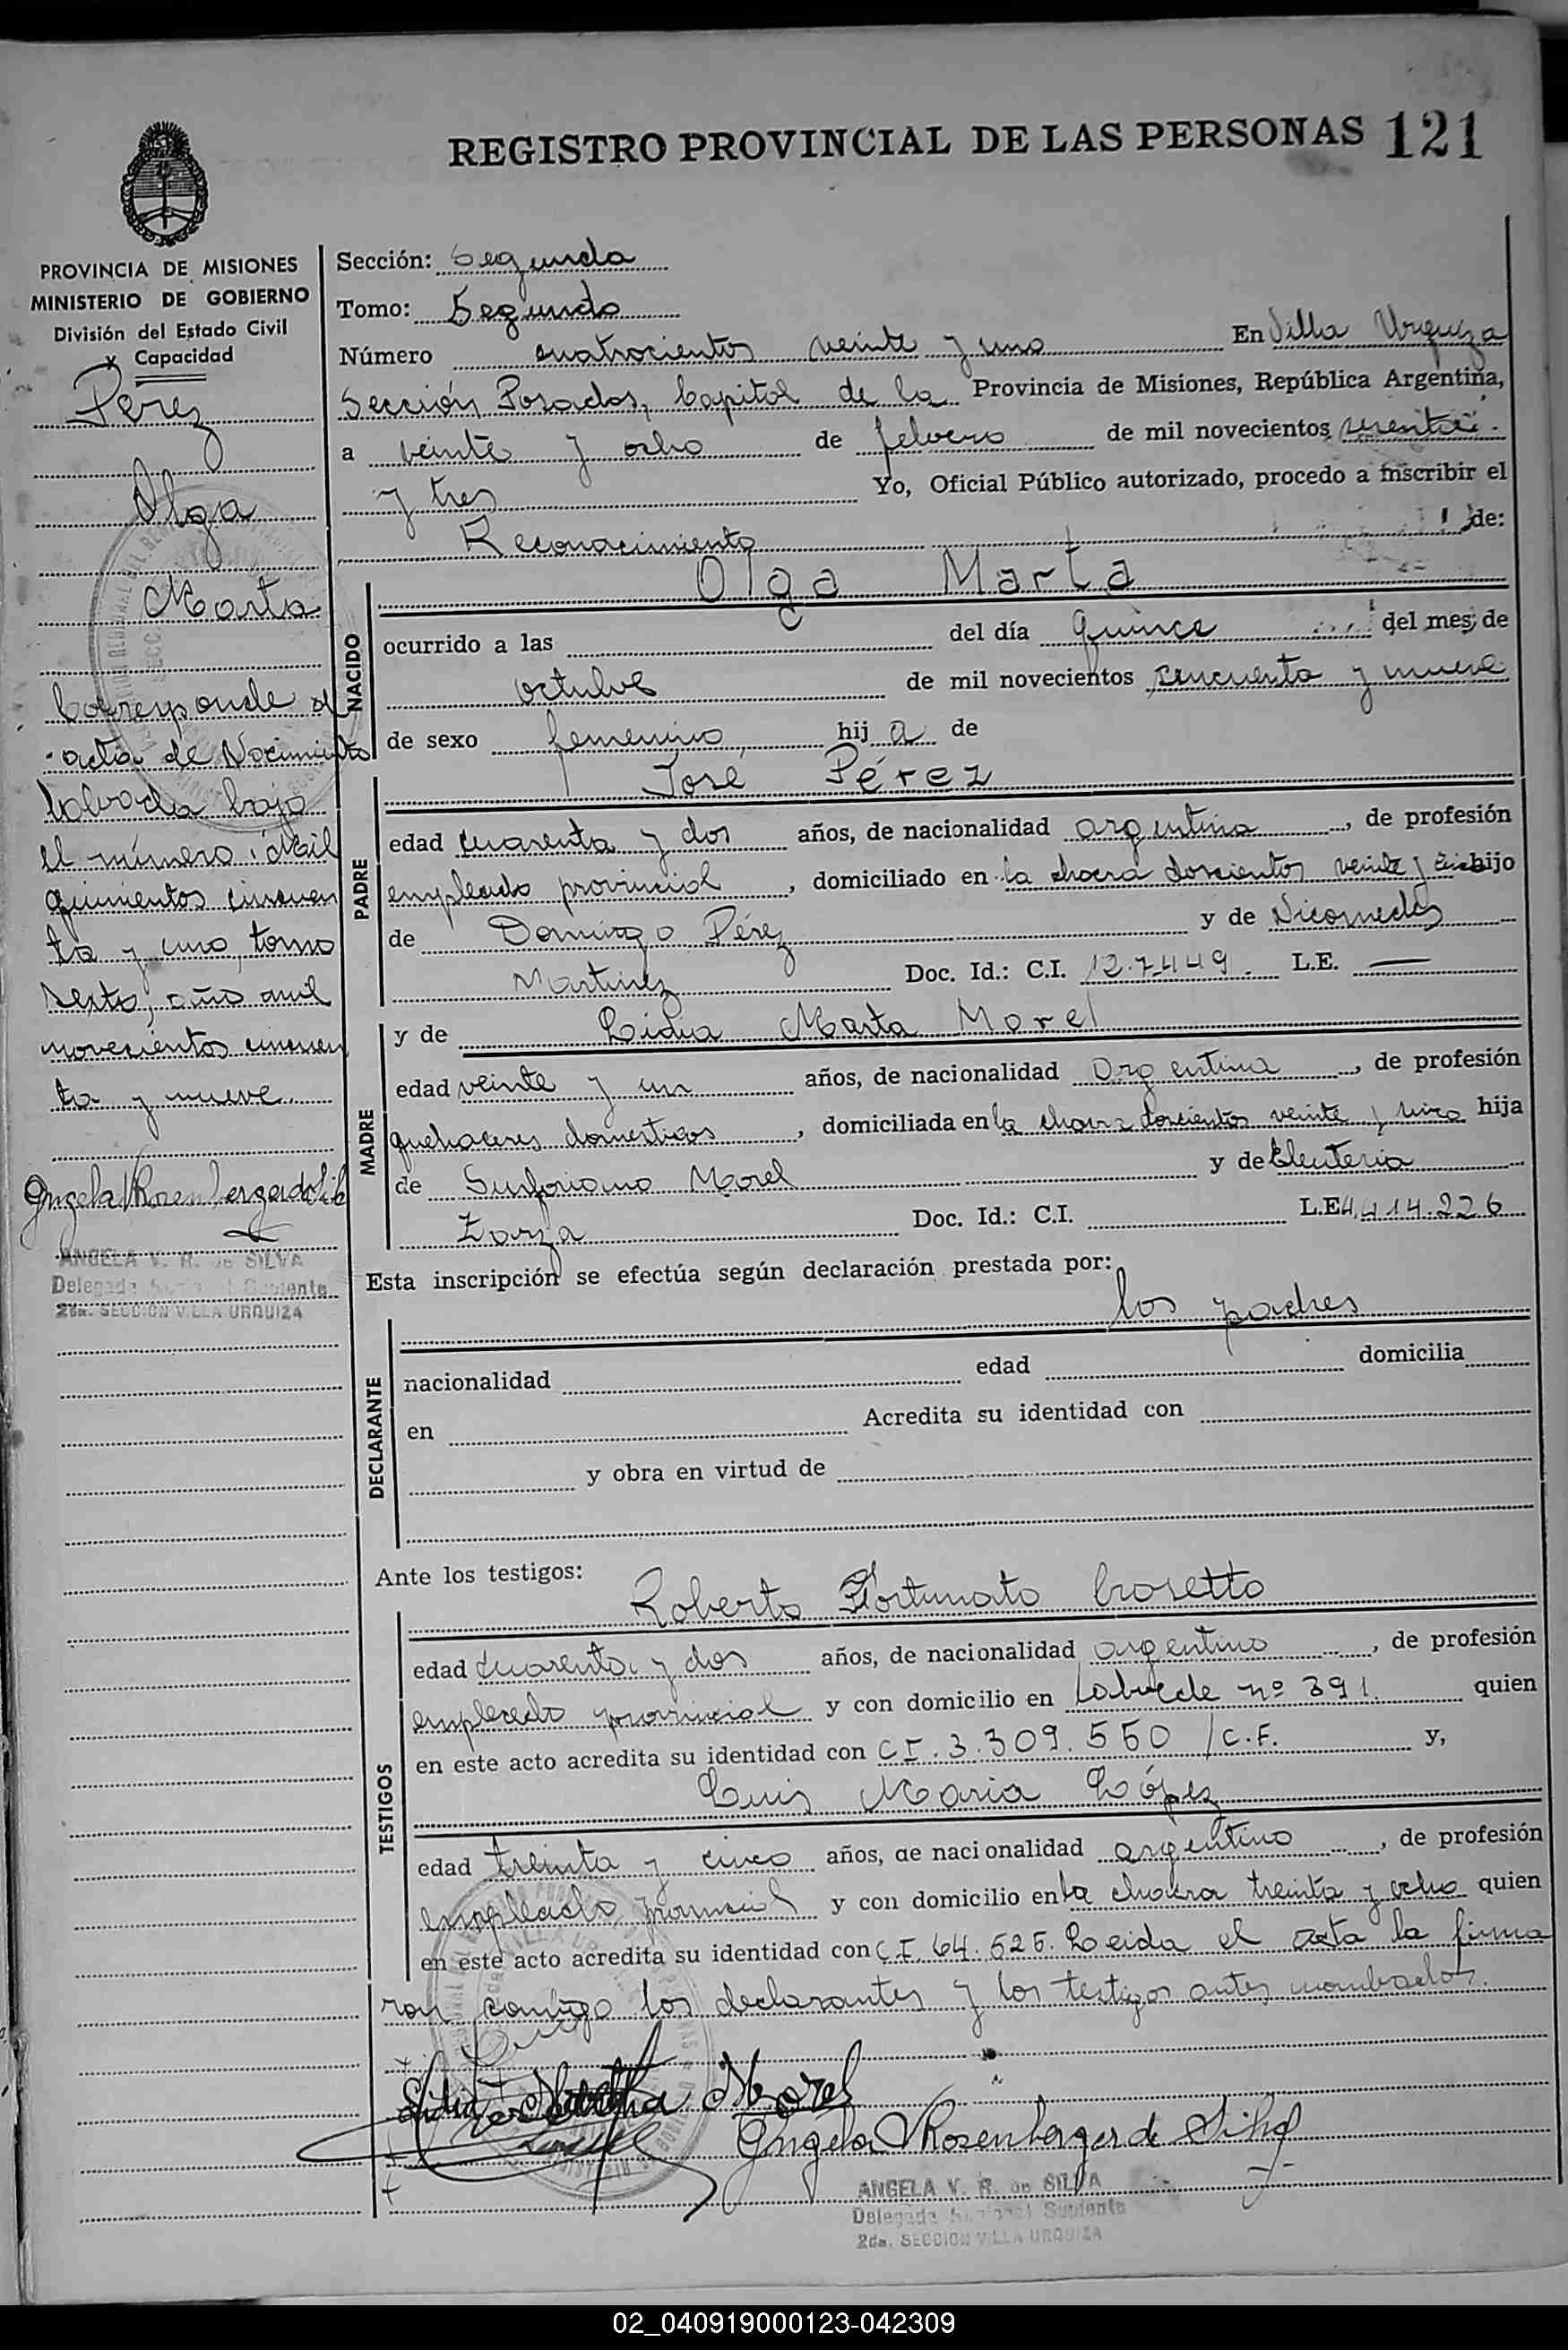 REGISTRO PROVINCIAL DE LAS PERSONAS 121
PROVINCIA DE MISIONES
MINISTERIO DE GOBIERNO
División del Estado Civil
y Capacidad
Perez
Olga
Marta
Corresponde al
acta de Nacimiento
labrada bajo
el número: Mil
quinientos cincuen
ta y uno, tomo
sexto, año mil
novecientos cincuen
ta y nueve.
Angela V Rosenberger de Silva
ANGELA V. R. de SILVA
Delegada Suplente
2da. SECCION VILLA URQUIZA
Sección: Segunda
Tomo: Segundo
Número cuatrocientos veinte y uno En Villa Urquiza
Sección Posadas, Capital de la Provincia de Misiones, República Argentina,
a veinte y ocho de febrero de mil novecientos
y tres Yo, Oficial Público autorizado, procedo a inscribir el
Reconocimiento de:
NACIDO
Olga Marta
ocurrido a las del día quince del mes de
octubre de mil novecientos cincuenta y nueve
de sexo femenino hij a de
PADRE
José Pérez
edad cuarenta y dos años, de nacionalidad argentina, de profesión
empleado provincial, domiciliado en la chacra doscientos veinte y hijo
de Domingo Pérez y de Nicomedes
Martinez Doc. Id.: C.I. 127449. L.E. —
MADRE
y de Lidia Marta Morel
edad veinte y un años, de nacionalidad Argentina, de profesión
quehaceres domesticos, domiciliada en la chacra doscientos veinte y cinco hija
de Sinforiano Morel y de Eleuteria
Zorza Doc. Id.: C.I. L.E 4.414.226
Esta inscripción se efectúa según declaración prestada por:
los padres
DECLARANTE
nacionalidad edad domicilia
en Acredita su identidad con
y obra en virtud de
Ante los testigos:
TESTIGOS
Roberto Fortunato Crosetto
edad cuarenta y dos años, de nacionalidad argentino, de profesión
empleado provincial y con domicilio en nº 391. quien
en este acto acredita su identidad con CI. 3.309.550 /C.F. y,
Luis Maria López
edad treinta y cinco años, de nacionalidad argentino, de profesión
empleado provincial y con domicilio en la chacra treinta y ocho quien
en este acto acredita su identidad con C.I. 64.525. Leida el acta la firma
ron conmigo los declarantes y los testigos antes nombrados.
Lidia Martha Morel
Angela V Rosenberger de Silva
ANGELA V. R. de SILVA
Delegada Suplente
2da. SECCION VILLA URQUIZA
02_040919000123-042309